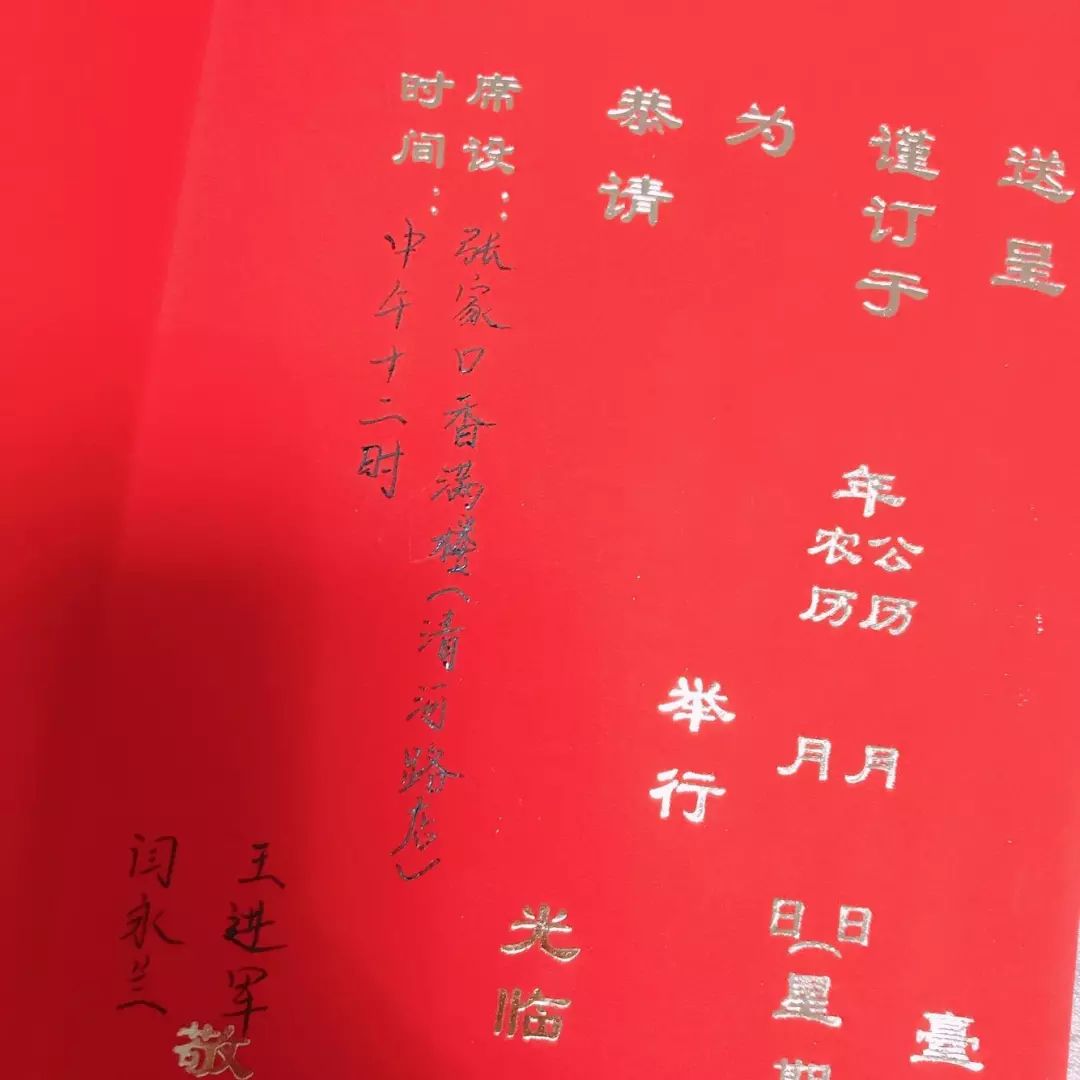 送呈 臺
谨订于 年 公历 月 日
农历 月 日(星期
为 举行
恭请 光临
席设:张家口香满楼(清河路店)
时间:中午十二时
王进军
闫永兰
敬